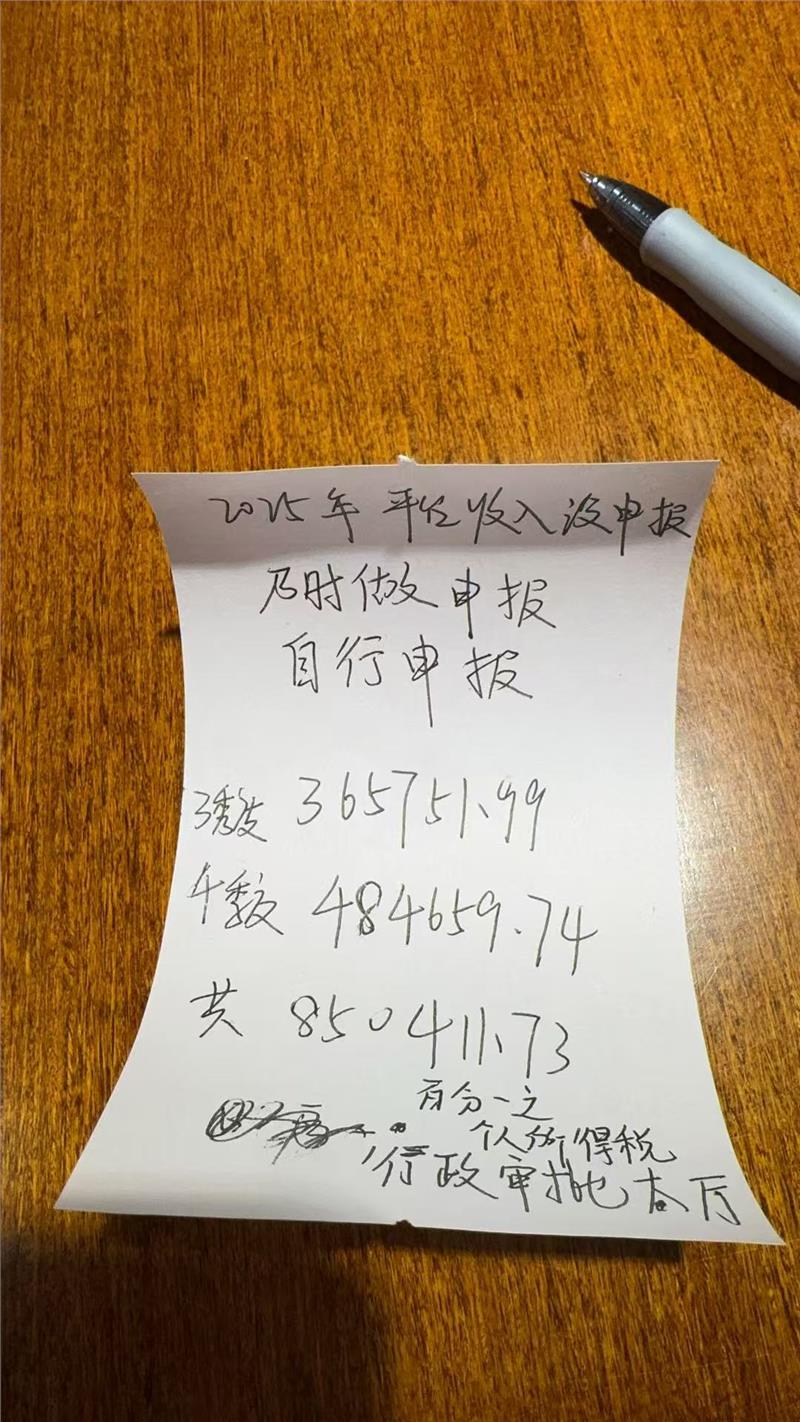 2025年 平台收入没申报
及时做申报
自行申报
3季度 365751.99
4季度 484659.74
共 850411.73
百分一之
个人所得税
行政审批大厅